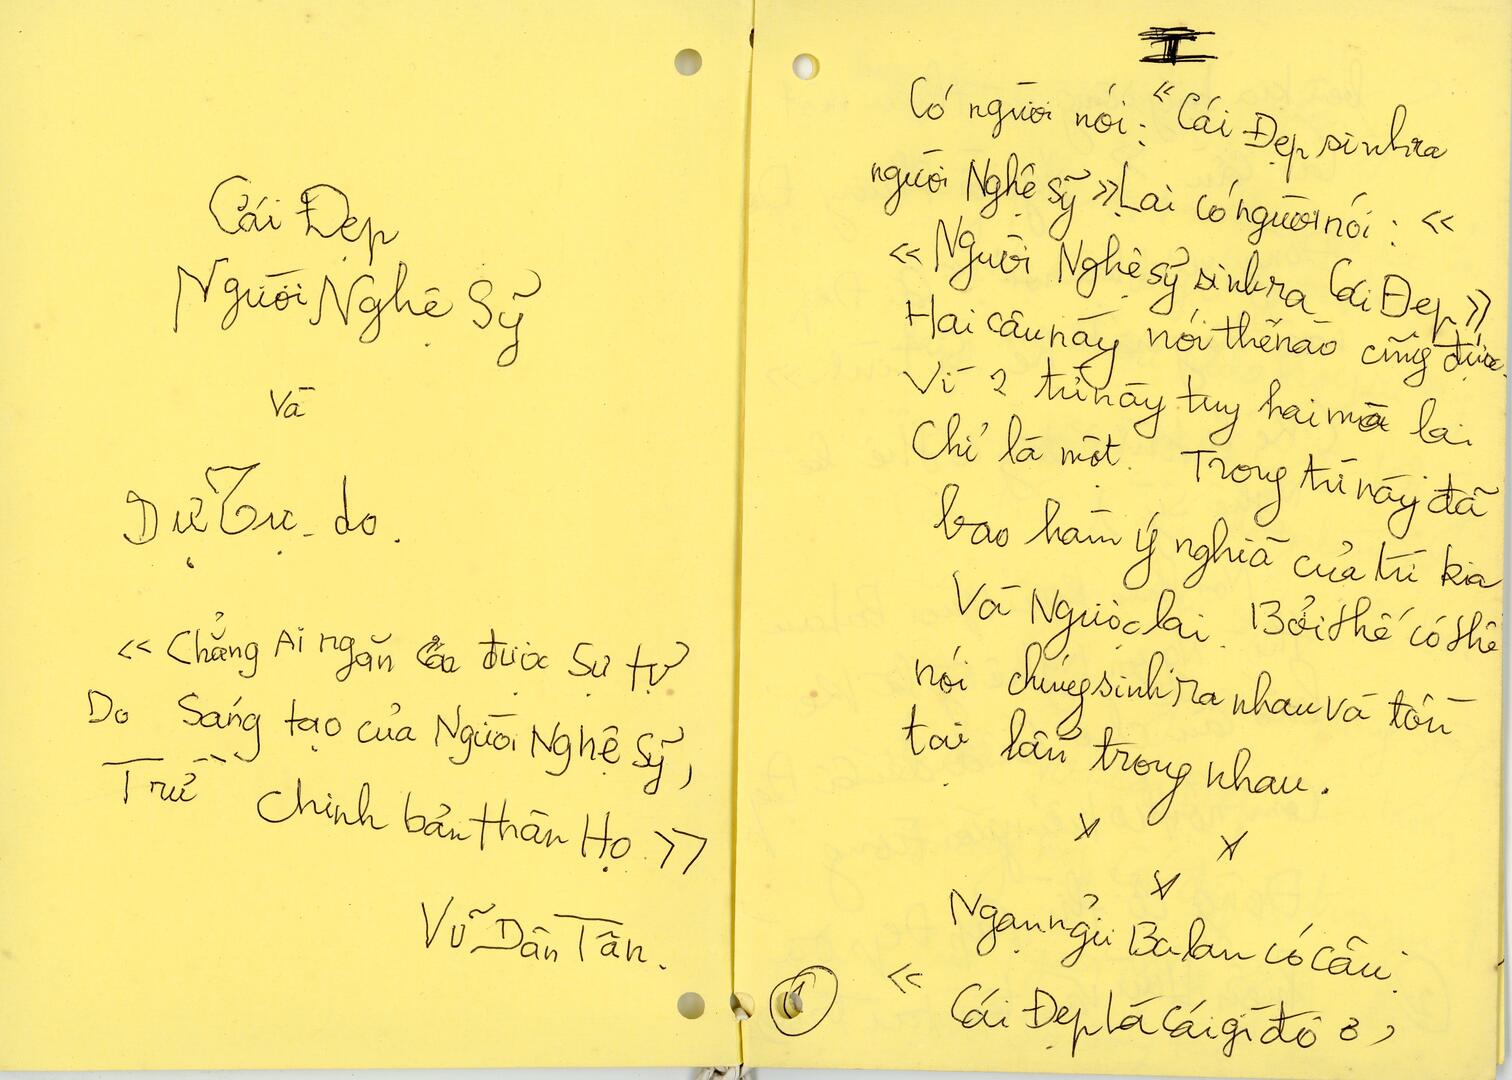 Cái Đẹp
Người Nghệ Sỹ
Và
Sự Tự do.
« Chẳng Ai ngăn cản được Sự tự
Do Sáng tạo của Người Nghệ Sỹ,
Trừ chính bản thân Họ. »
Vũ Dân Tân.
I
Có người nói: « Cái Đẹp sinh ra
người Nghệ sỹ » Lại có người nói: «
« Người Nghệ sỹ sinh ra Cái Đẹp »
Hai câu này nói thế nào cũng được.
Vì 2 từ này tuy hai mà lại
Chỉ là một. Trong từ này đã
bao hàm ý nghĩa của từ kia
Và Ngược lại. Bởi thế có thể
nói chúng sinh ra nhau và tồn
tại lẫn trong nhau.
x x
x
Ngạn ngữ Ba lan có câu.
« Cái Đẹp là cái gì đó ở,
1